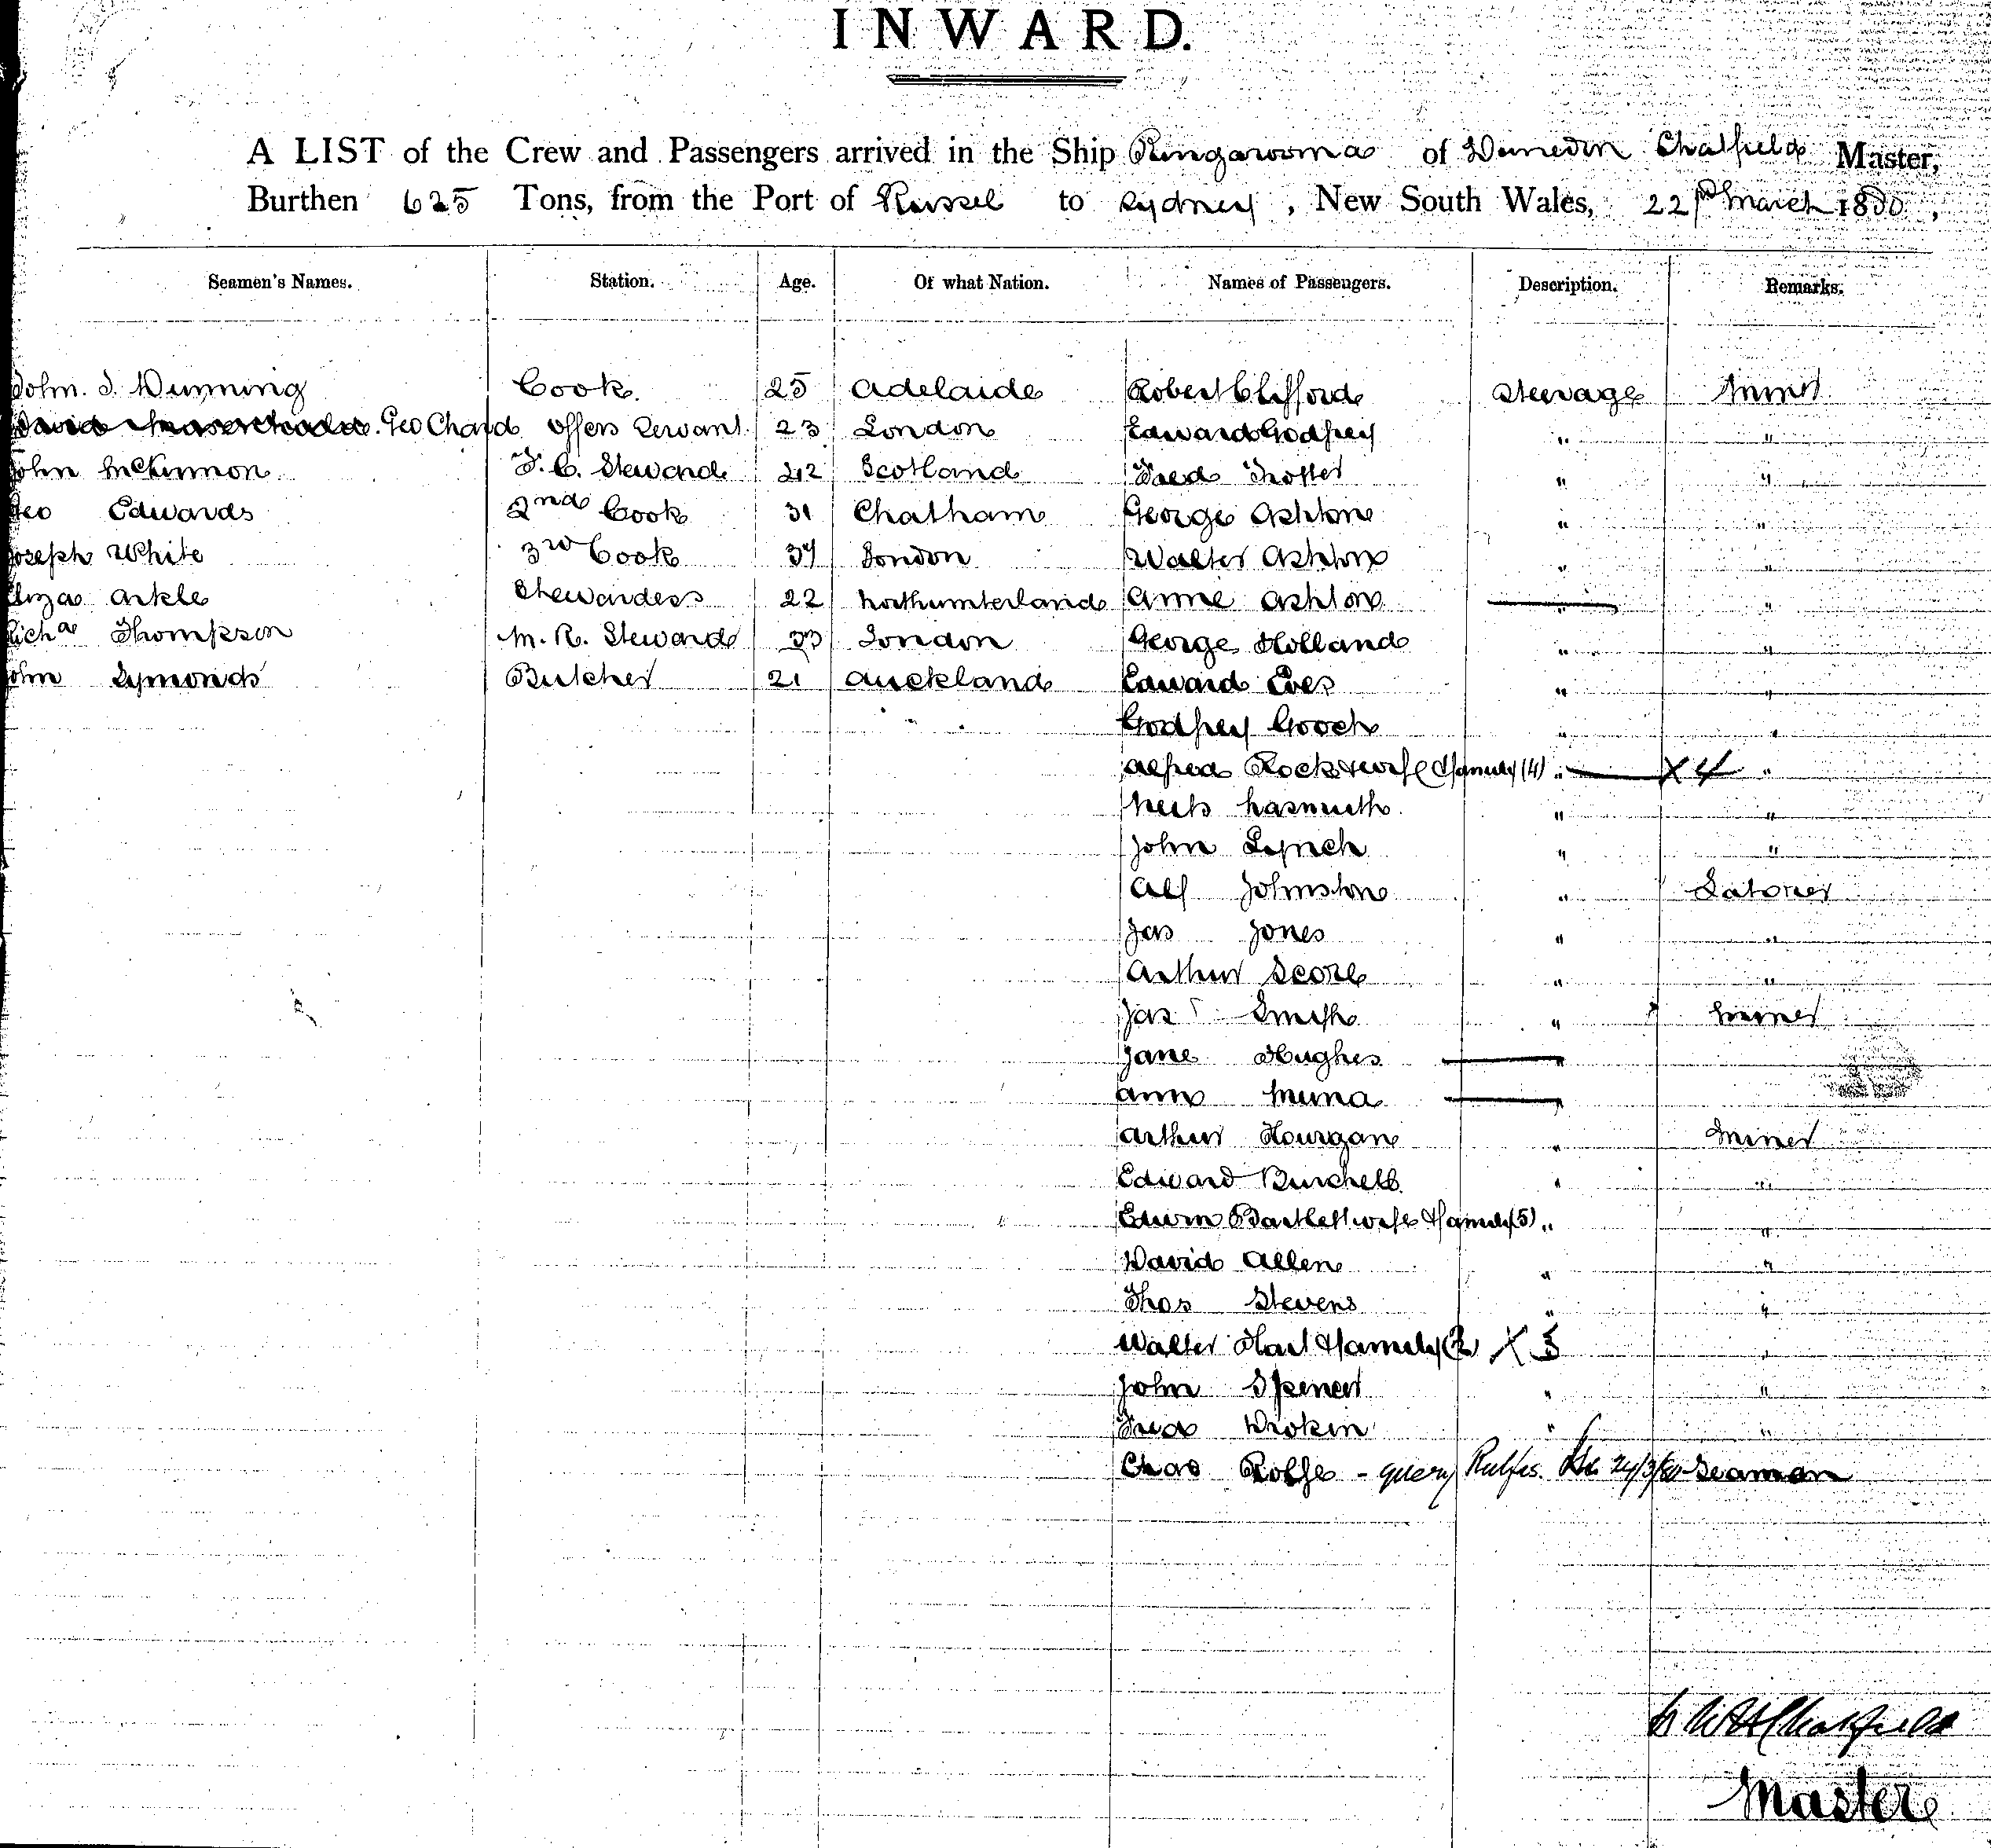 INWARD.
A LIST of the Crew and Passengers arrived in the Ship Ringarooma of Dunedin Chatfield Master,
Burthen 625 Tons, from the Port of Russel to Sydney, New South Wales, 22nd March 1880,
Seamen's Names. Station. Age. Of what Nation. Names of Passengers. Description. Remarks.
John. J. Dunning Cook. 25 Adelaide Robert Clifford Steerage Miner
Geo Chard Offers Servant 23 London Edward Godfrey " "
John McKinnon F. C. Steward 42 Scotland Fred Trotter " "
Geo Edwards 2nd Cook 31 Chatham George Ashton " "
Joseph White 3rd Cook 37 London Walter Ashton " "
Eliza Arkle Stewardess 22 Northumberland Anne Ashton " "
Richd Thompson M. R. Steward 33 London George Holland " "
John Symonds Butcher 21 Auckland Edward Eves " "
Godfrey Gooch " "
Alfred Rock & wife & family (4) " X 4 "
" "
John Lynch " "
Alf Johnston " Laborer
Jas Jones " "
Arthur Score " "
Jas Smith " Miner
Jane Hughes "
Ann "
Arthur Hourgan " Miner
Edward Burchell " "
Edwin Bartlett wife & family (5) " "
David Allen " "
Thos Stevens " "
Walter Hart & family (2) X 3 "
John Spencer " "
Fred " "
Chas Rolfe - query Rulfes. 24/3/80 Seaman
Chatfield
Master